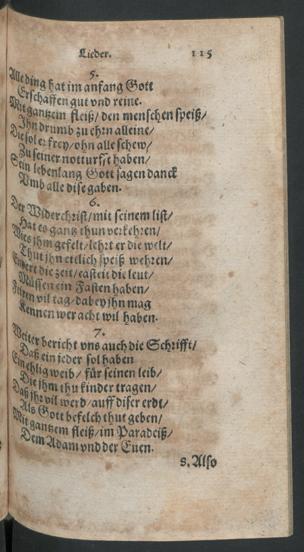 Lieder. 115
5.
Alle ding hat im anfang Gott
Erschaffen gut vnd reine.
Mit gantzem fleiß/ den menschen speiß/
Ihn drumb zu ehrn alleine/
Die sol er frey/ ohn alle schew/
Zu seiner notturfft haben/
Sein lebenlang Gott sagen danck
Vmb alle dise gaben.
6.
Der Widerchrist/ mit seinem list/
Hat es gantz thun verkehren/
Wies jhm gefelt/ lehrt er die welt/
Thut jhn etlich speiß wehren/
die zeit/ casteit die leut/
Müssen ein Fasten haben/
vil tag/ dabey jhn mag
Kennen wer acht wil haben.
7.
Weiter bericht vns auch die Schrifft/
Daß ein jeder sol haben
Ein ehlig weib/ für seinen leib/
Die jhm thu kinder tragen/
Daß jhr vil werd/ auff diser erdt/
Als Gott befelch thut geben/
Mit gantzem fleiß/ im Paradeiß/
Dem Adam vnd der Euen.
8. Also